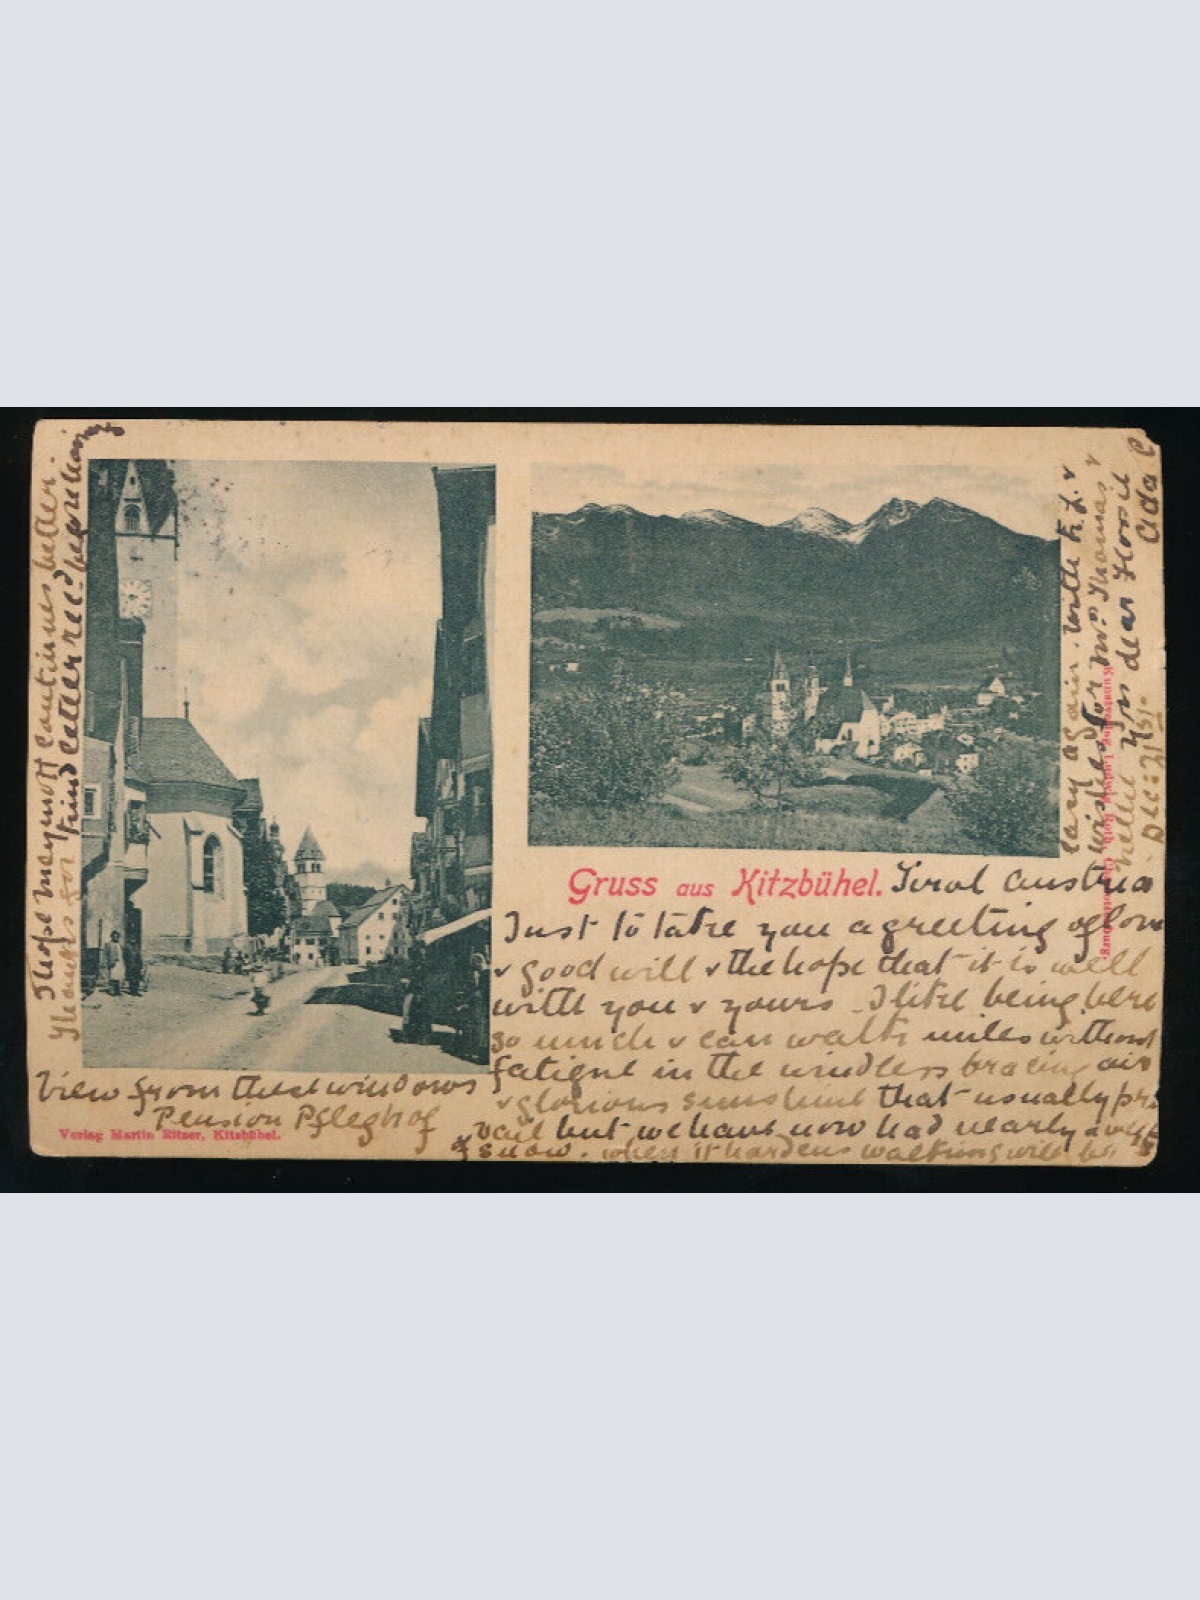 Gruss aus Kitzbühel. Tirol Austria
Just to take you a greeting of love
& good will & the hope that it is well
with you & yours. I like being here
so much & can walk miles without
fatigue in the windless bracing air
& glorious sunshine that usually pre
vail but we have now had nearly a week
of snow. When it hardens walking will be
easy again. With K. L. &
wishes for Mr. Thomas &
Nellie Yrs dear
Ada C
Dec: 21st.
I hope continues better.
Thanks for kind letter recd
View from these windows
Pension Pfleghof
Verlag Martin Ritzer, Kitzbühel.
Kunstverlag Ludwig